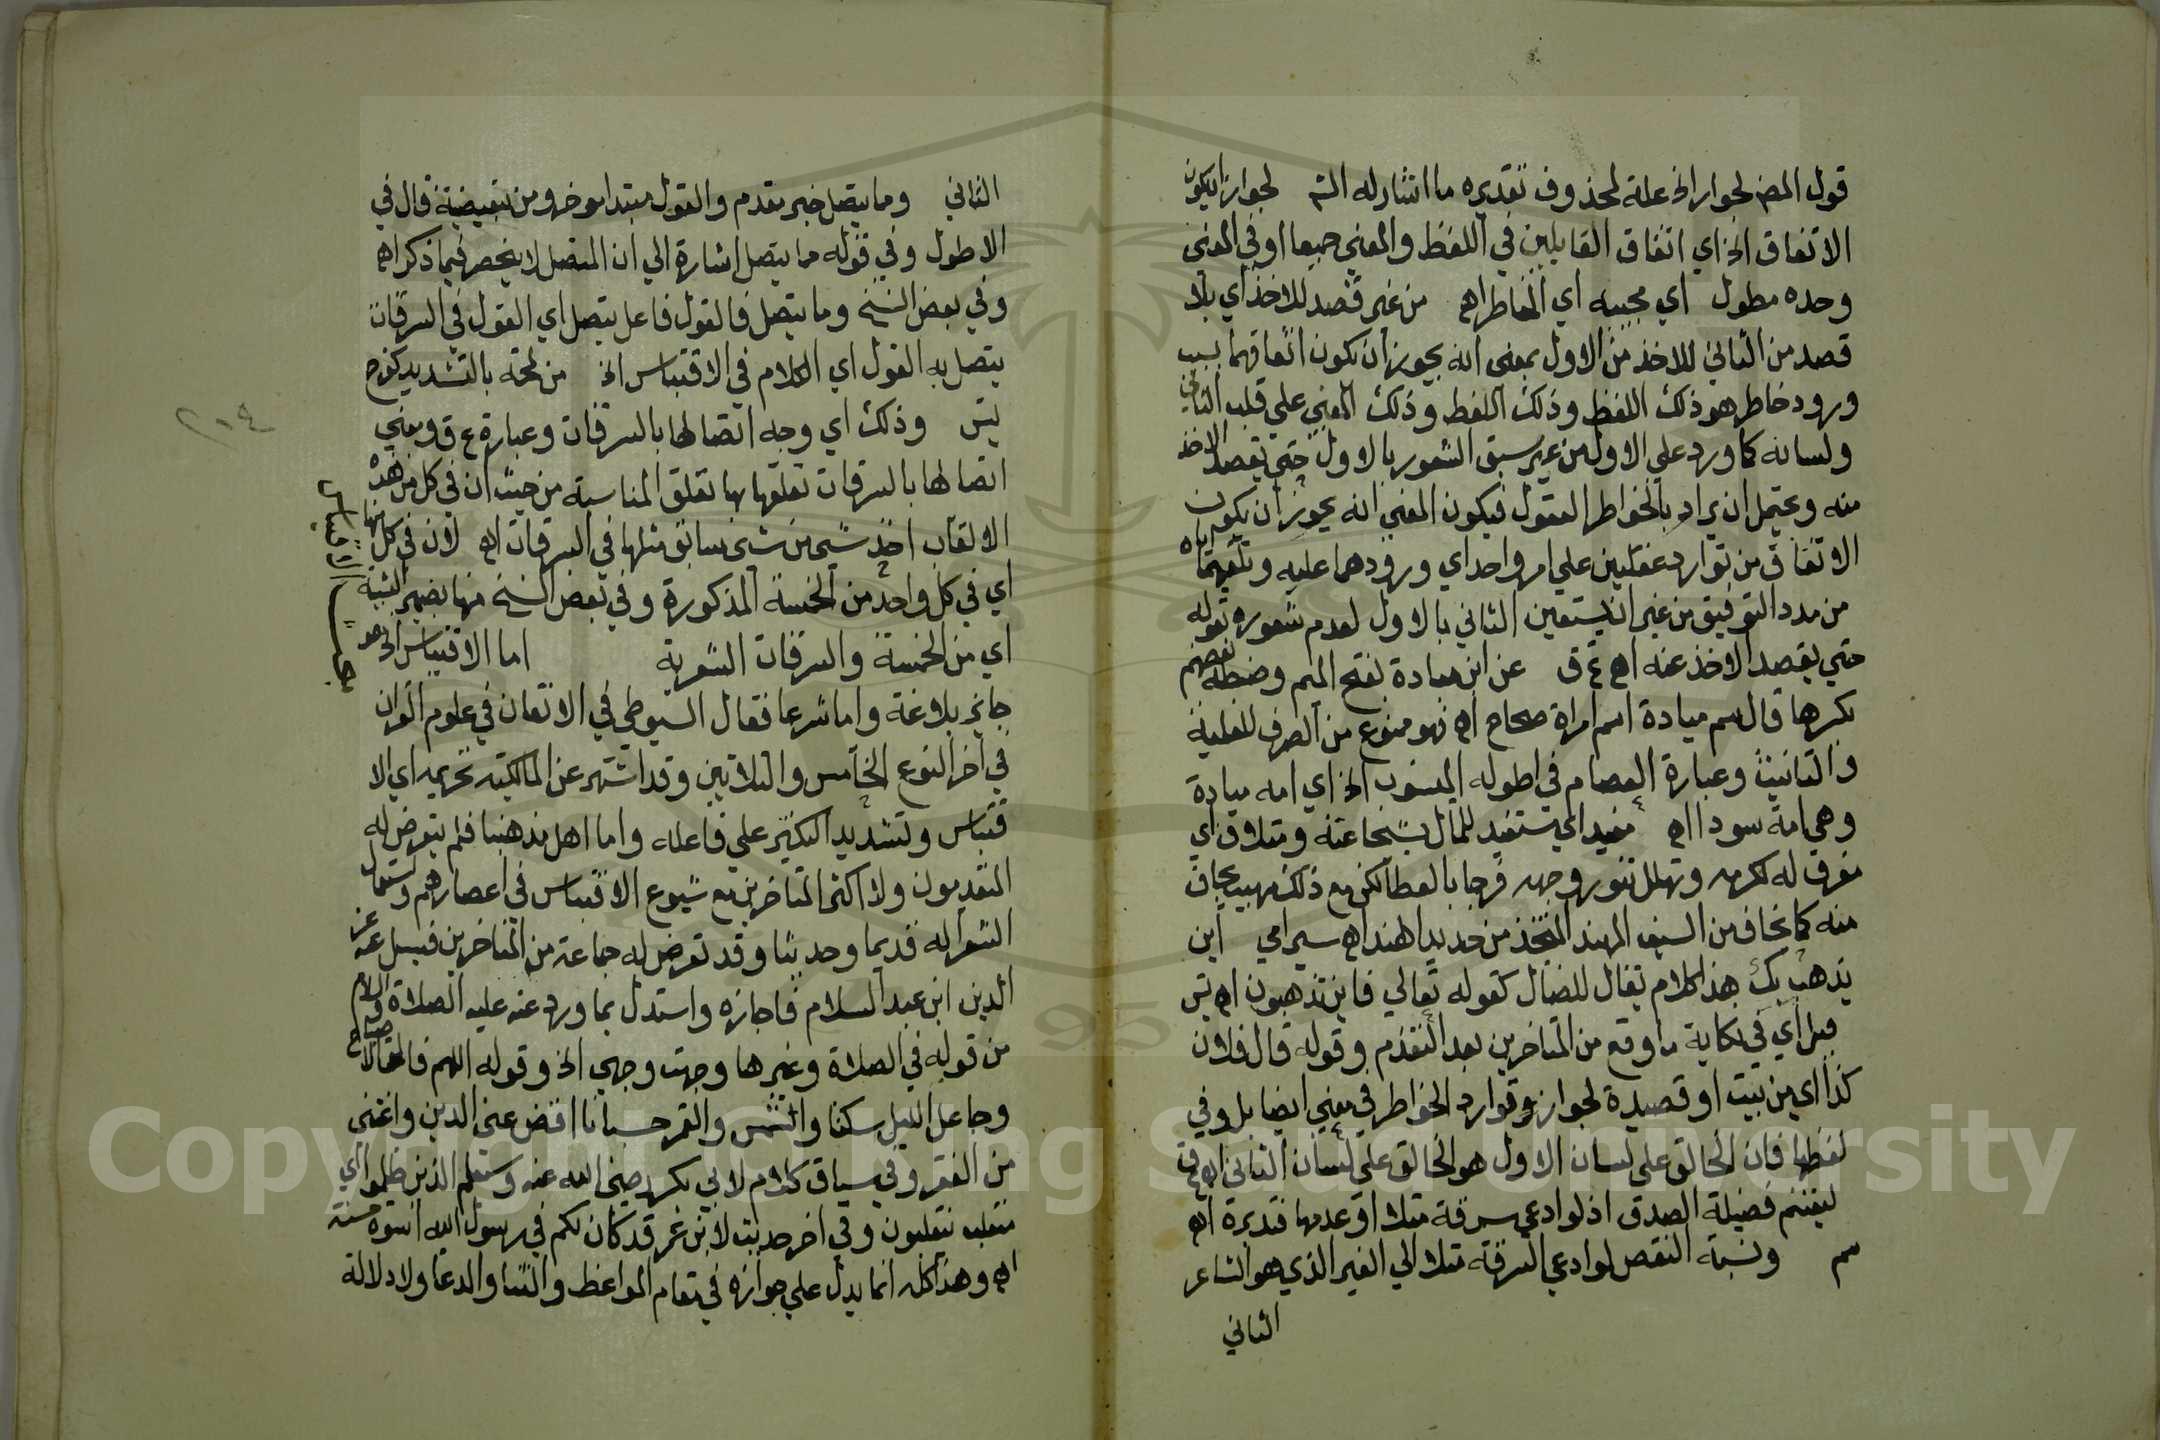 قول المص لجواز الخ علة لمحذوف تقديره ما اشار له الش لجواز ان يكون
الاتفاق الخ اي اتفاق القايلين في اللفظ والمعني جميعا او في المعني
وحده مطول اي مجيبه اي الخاطر اهـ من غير قصد للاخذ اي بلا
قصد من الثاني للاخذ من الاول بمعني انه يجوز ان يكون اتفاقهما بسبب
ورود خاطر هو ذلك اللفظ وذلك اللفظ وذلك المعني علي قلب الثاني
ولسانه كما ورد علي الاول من غير سبق الشعور بالاول حتي يقصد الاخذ
منه ويحتمل ان يراد بالخواطر العقول فيكون المعني انه يجوز ان يكون
الاتفاق من توارد عقلين علي امر واحد اي ورودهما عليه وتلقيهما اياه
من مدد التوفيق من غير ان يستعين الثاني بالاول لعدم شعوره وقوله
حتي يقصد الاخذ عنه اهـ ع ق عن ابن ميادة بفتح الميم وضبطه بعضهم
بكسرها قال سم ميادة اسم امراة صحاح اهـ فهو ممنوع من الصرف للعلمية
والتانيث وعبارة العصام في اطوله المنسوب الخ اي امه ميادة
وهي امة سودا اهـ مفيد اي مستفيد للمال بشجاعته ومتلاف اي
مفرق له لكرمه وتهلل تنور وجهه فرحا بالعطا لكن مع ذلك مهيب يخاف
منه كما يخاف من السيف المهند المتخذ من حديد الهند اهـ سيرامي اين
يذهب بك هذا كلام يقال للضال كقوله تعالي فاين تذهبون اهـ يس
قيل اي في حكاية ما وقع من المتاخرين بعد التقدم وقوله قال فلان
كذا اي من بيت او قصيدة لجواز توارد الخواطر في معني ايضا بل وفي
لفظها فان الخالق علي لسان الاول هو الخالق علي لسان الثاني اهـ ع ق
ليغتنم فضيلة الصدق اذ لو ادعي سرقة مثلا او عدمها فتدبره اهـ
سم ونسبة النقص لو ادعي السرقة مثلا الي الغير الذي هو الشاعر
الثاني
الثاني ومما يتصل خبر مقدم والقول مبتدا موخر ومن تبعيضية قال في
الاطول وفي قوله مما يتصل اشارة الي ان المتصل لا ينحصر فيما ذكر اهـ
وفي بعض النسخ وما يتصل فالقول فاعل يتصل اي القول في السرقات
يتصل به القول اي الكلام في الاقتباس الخ من لمحه بالتشديد كفرح
يس وذلك اي وجه اتصالها بالسرقات وعبارة ع ق ومعني
اتصالها بالسرقات تعلقها بها تعلق المناسبة من حيث ان في كل من هذه
الالقاب اخذ شي من شي سابق مثلها في السرقات اهـ لان في كل منها
اي في كل واحد من الخمسة المذكورة وفي بعض النسخ منها بضمير التثنية
اي من الخمسة والسرقات الشعرية اما الاقتباس الخ هو
جايز بلاغة واما شرعا فقال السيوطي في الاتقان في علوم القران
في اخر النوع الخامس والثلاثين وقد اشتهر عن المالكية تحريمه اي الا
قتباس وتشديد النكير علي فاعله واما اهل مذهبنا فلم يتعرض له
المتقدمون ولا اكثر المتاخرين مع شيوع الاقتباس في اعصارهم واستعمال
الشعرا له قديما وحديثا وقد تعرض له جماعة من المتاخرين فسيل عنه عز
الدين ابن عبد السلام فاجازه واستدل بما ورد عنه عليه الصلاة والسلام
من قوله في الصلاة وغيرها وجهت وجهي الخ وقوله اللهم فالق الاصباح
وجاعل الليل سكنا والشمس والقمر حسبانا اقض عني الدين واغنني
من الفقر وفي سياق كلام لابي بكر رضي الله عنه وسيعلم الذين ظلموا اي
منقلب ينقلبون وفي اخر حديث لابن عمر قد كان لكم في رسول الله اسوة حسنة
اهـ وهذا كله انما يدل علي جوازه في مقام المواعظ والثنا والدعا ولا دلالة
٢٠٤